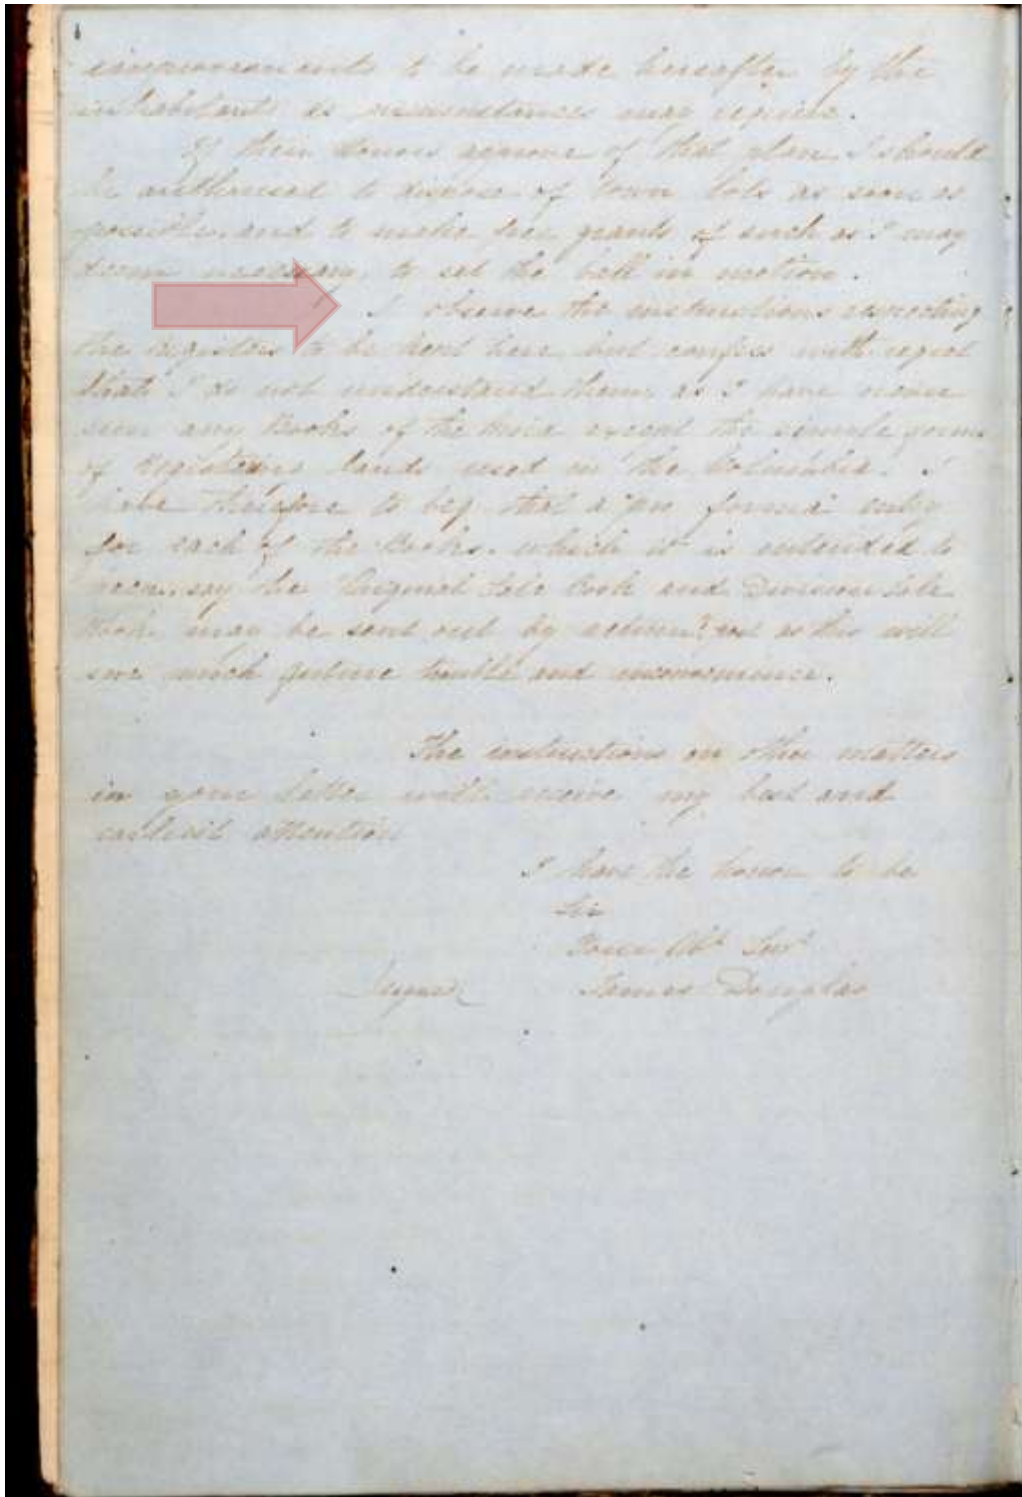 improvements to be made hereafter by the
inhabitants as circumstances may require.
If their honors approve of that plan I should
be authorised to dispose of town lots as soon as
possible, and to make free grants of such as I may
deem necessary, to set the ball in motion.
I observe the instructions respecting
the registers to be kept here but confess with regret
that I do not understand them, as I have never
seen any Books of the kind except the simple forms
of registering lands used in the Columbia. I
have therefore to beg that a "pro forma" entry
for each of the Books, which it is intended to
keep, say the Original Sale Book and Division Sale
Book may be sent out by return as this will
save much future trouble and inconvenience.
The instructions on other matters
in your letter will receive my best and
earliest attention
I have the honor to be
Sir
Your Obt Servt
Signed James Douglas